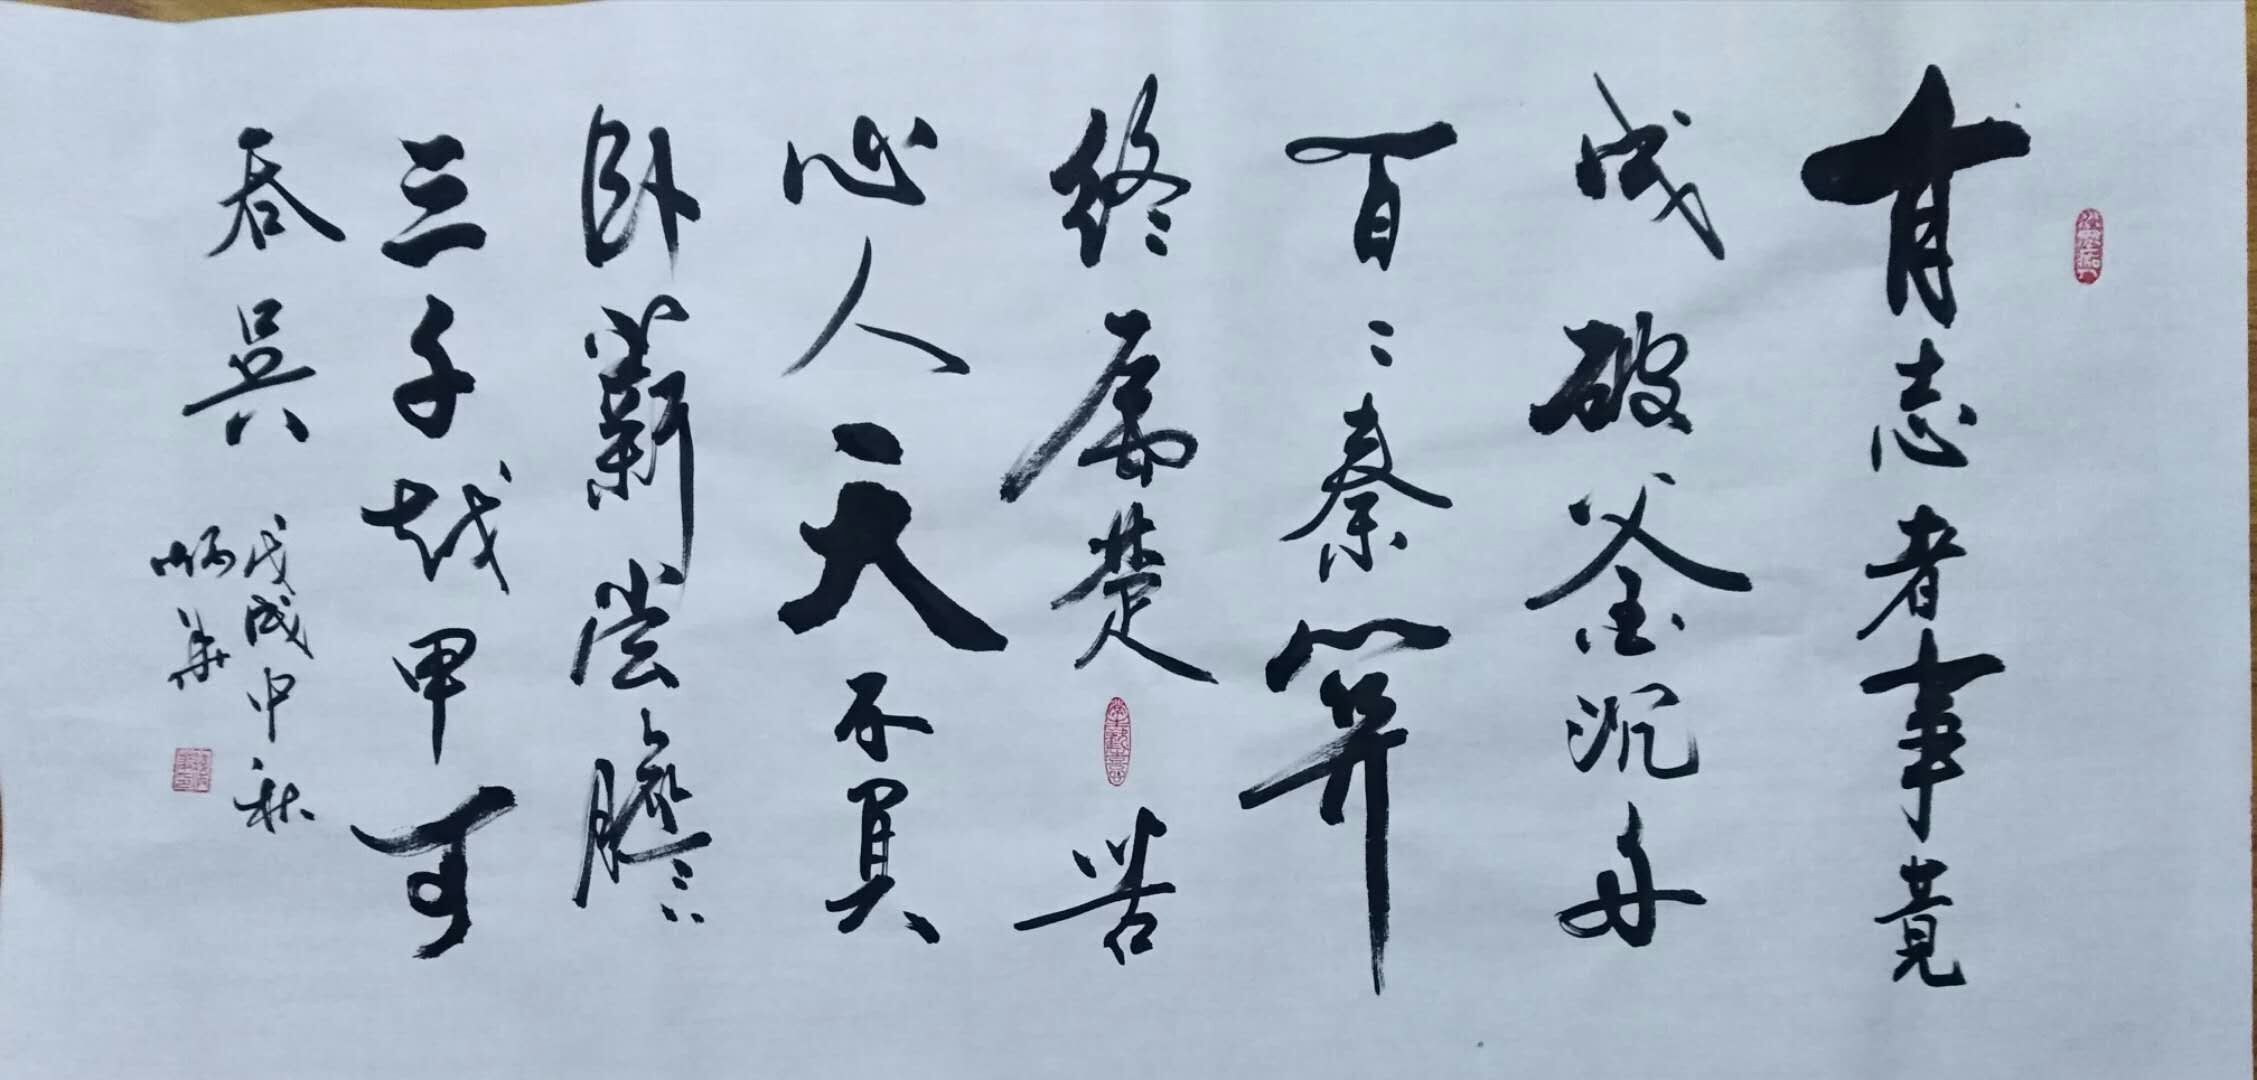 有志者事竟
成破釜沉舟
百二秦關
終属楚苦
心人天不負
卧薪尝膽
三千越甲可
吞吳
戊戌中秋
炳華